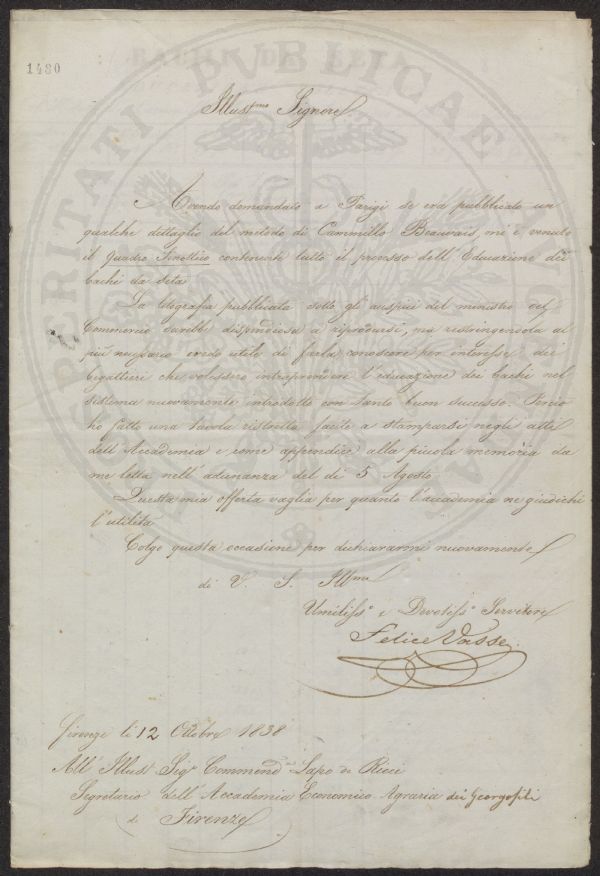 1480
Illust.mo Signore
Avendo domandato a Parigi se era pubblicato un
qualche dettaglio del metodo di Cammillo Beauvais, mi è venuto
il Quadro Sinottico contenente tutto il processo dell'Educazione dei
bachi da seta
La litografia pubblicata sotto gli auspici del ministro del
Commercio sarebbe dispendiosa a riprodursi, ma restringendola al
più necessario credo utile di farla conoscere per interesse dei
Bigattieri che volessero intraprendere l'educazione dei bachi nel
sistema nuovamente introdotto con tanto buon successo. Perciò
ho fatto una tavola ristretta facile a stamparsi negli atti
dell'Accademia e come appendice alla piccola memoria da
me letta nell'adunanza del dì 5 Agosto
Questa mia offerta vaglia per quanto l'accademia ne giudichi
l'utilità
Colgo questa occasione per dichiararmi nuovamente
di V. S. Illma
Umiliss.o e Devotiss.o Servitore
Felice Vasse
Firenze li 12 Ottobre 1838
All' Illust Sigr Commendre Lapo de Ricci
Segretario dell'Accademia Economico-Agraria dei Georgofili
di Firenze
PROSPERITATI PUBLICAE AUGENDAE